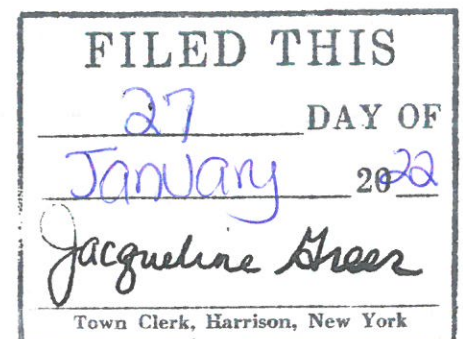 FILED THIS
27 DAY OF
January 2022
Jacqueline Greer
Town Clerk, Harrison, New York